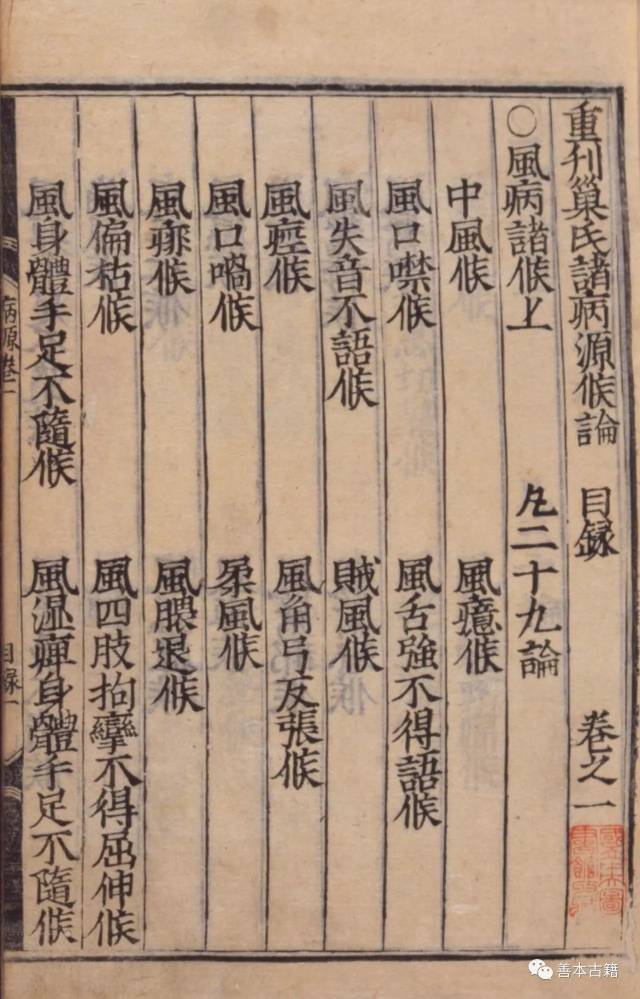 重刊巢氏諸病源候論 目録 卷之一
○風病諸候上 凡二十九論
中風候 風癔候
風口噤候 風舌強不得語候
風失音不語候 賊風候
風痙候 風角弓反張候
風口喎候 柔風候
風痱候 風腲退候
風偏枯候 風四肢拘攣不得屈伸候
風身體手足不隨候 風濕痺身體手足不隨候
病源卷一 目録一
善本古籍